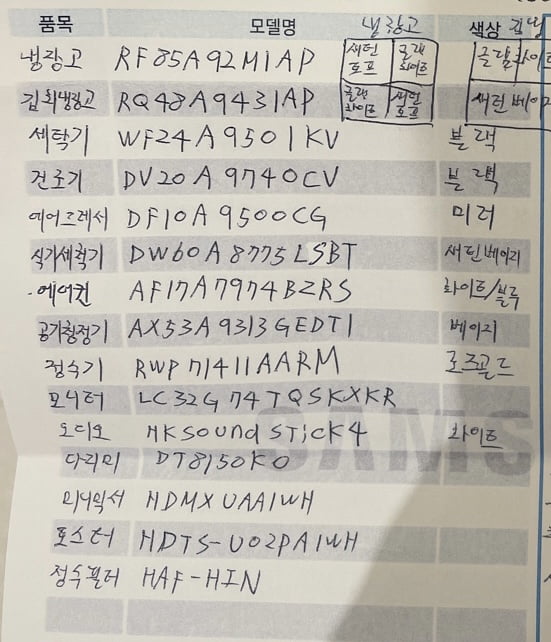 품목 모델명 냉장고 색상 김냉
냉장고 RF85A92M1AP 새턴 토프 글램 화이트 글램 화이트
김치냉장고 RQ48A9431AP 글램 화이트 새턴 토프 새턴 베이지
세탁기 WF24A9501KV 블랙
건조기 DV20A9740CV 블랙
에어드레서 DF10A9500CG 미러
식기세척기 DW60A8775LSBT 새틴베이지
·에어컨 AF17A7974BZRS 화이트/블루
공기청정기 AX53A9313GEDT1 베이지
정수기 RWP71411AARM 로즈골드
모니터 LC32G74TQSKXKR
오디오 HKSOUND STICK4 화이트
다리미 DT8150K0
미니믹서 HDMXUAA1WH
토스터 HDTS-U02PA1WH
정수필터 HAF-HIN
SAMS